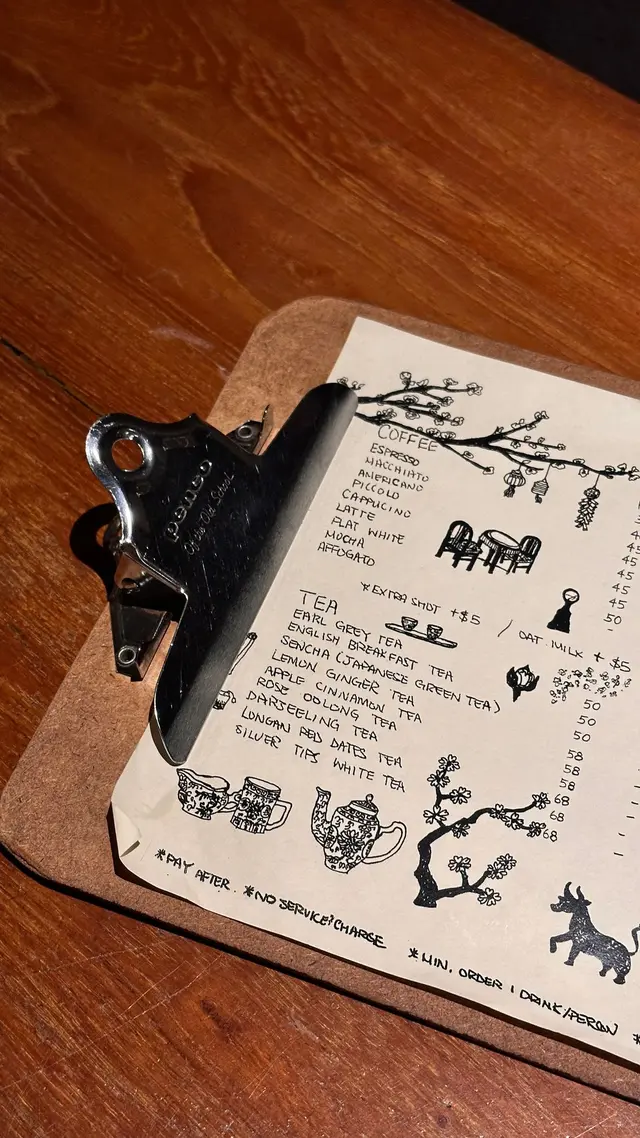 penco
COFFEE
ESPRESSO
MACCHIATO
AMERICANO
PICCOLO
CAPPUCINO
LATTE
FLAT WHITE
MOCHA
AFFOGATO
45
45
45
45
50
-
*EXTRA SHOT +$5 / OAT MILK + $5
TEA
EARL GREY TEA
ENGLISH BREAKFAST TEA
SENCHA (JAPANESE GREEN TEA)
LEMON GINGER TEA
APPLE CINNAMON TEA
ROSE OOLONG TEA
DARJEELING TEA
LONGAN RED DATES TEA
SILVER TIPS WHITE TEA
50
50
50
58
58
58
68
68
68
*PAY AFTER. *NO SERVICE CHARGE *MIN. ORDER 1 DRINK/PERSON *